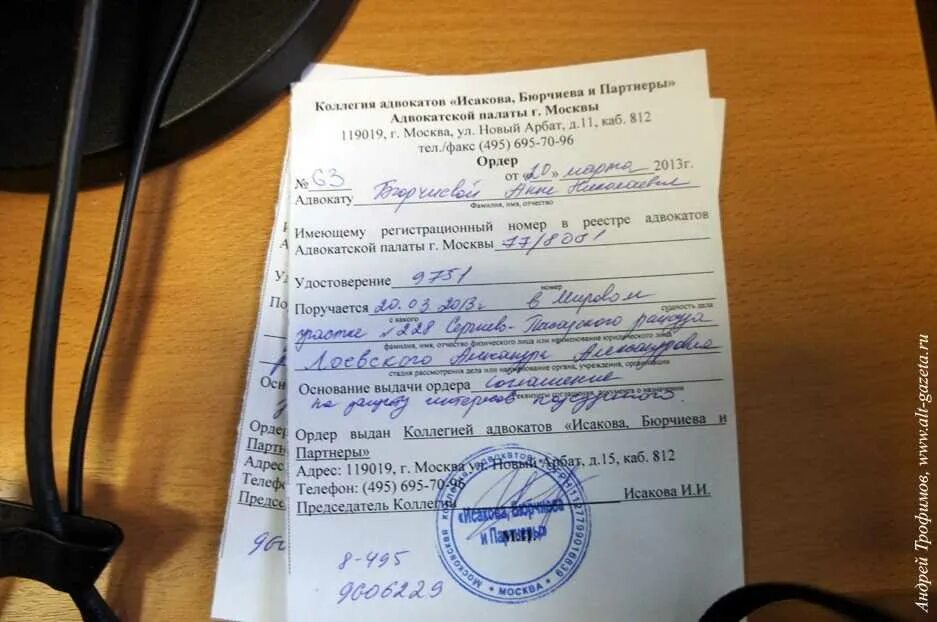 Коллегия адвокатов «Исакова, Бюрчиева и Партнеры»
Адвокатской палаты г. Москвы
119019, г. Москва, ул. Новый Арбат, д.11, каб. 812
тел./факс (495) 695-70-96
Ордер
№ 63 от «20» марта 2013г.
Адвокату Бюрчиевой Анне Николаевне
Фамилия, имя, отчество
Имеющему регистрационный номер в реестре адвокатов
Адвокатской палаты г. Москвы 77/8001
Удостоверение 9751
номер
Поручается 20.03.2013г в Мировом
с какого сущность дела
участке №228 Сергиево-Посадского
фамилия, имя, отчество физического лица или наименование юридического лица
Лоевского Александра Александровича
стадия рассмотрения дела или наименование органа, учреждения, организации
Основание выдачи ордера соглашение
реквизиты соглашения, документа о назначении
на защиту интересов подсудимого.
Ордер выдан Коллегией адвокатов «Исакова, Бюрчиева и
Партнеры»
Адрес: 119019, г. Москва ул. Новый Арбат, д.15, каб. 812
Телефон: (495) 695-70-96
Председатель Коллегии Исакова И.И.
«Исакова, Бюрчиева
и Партнеры»
МОСКВА
8-495
9606229
Андрей Трофимов, www.alt-gazeta.ru